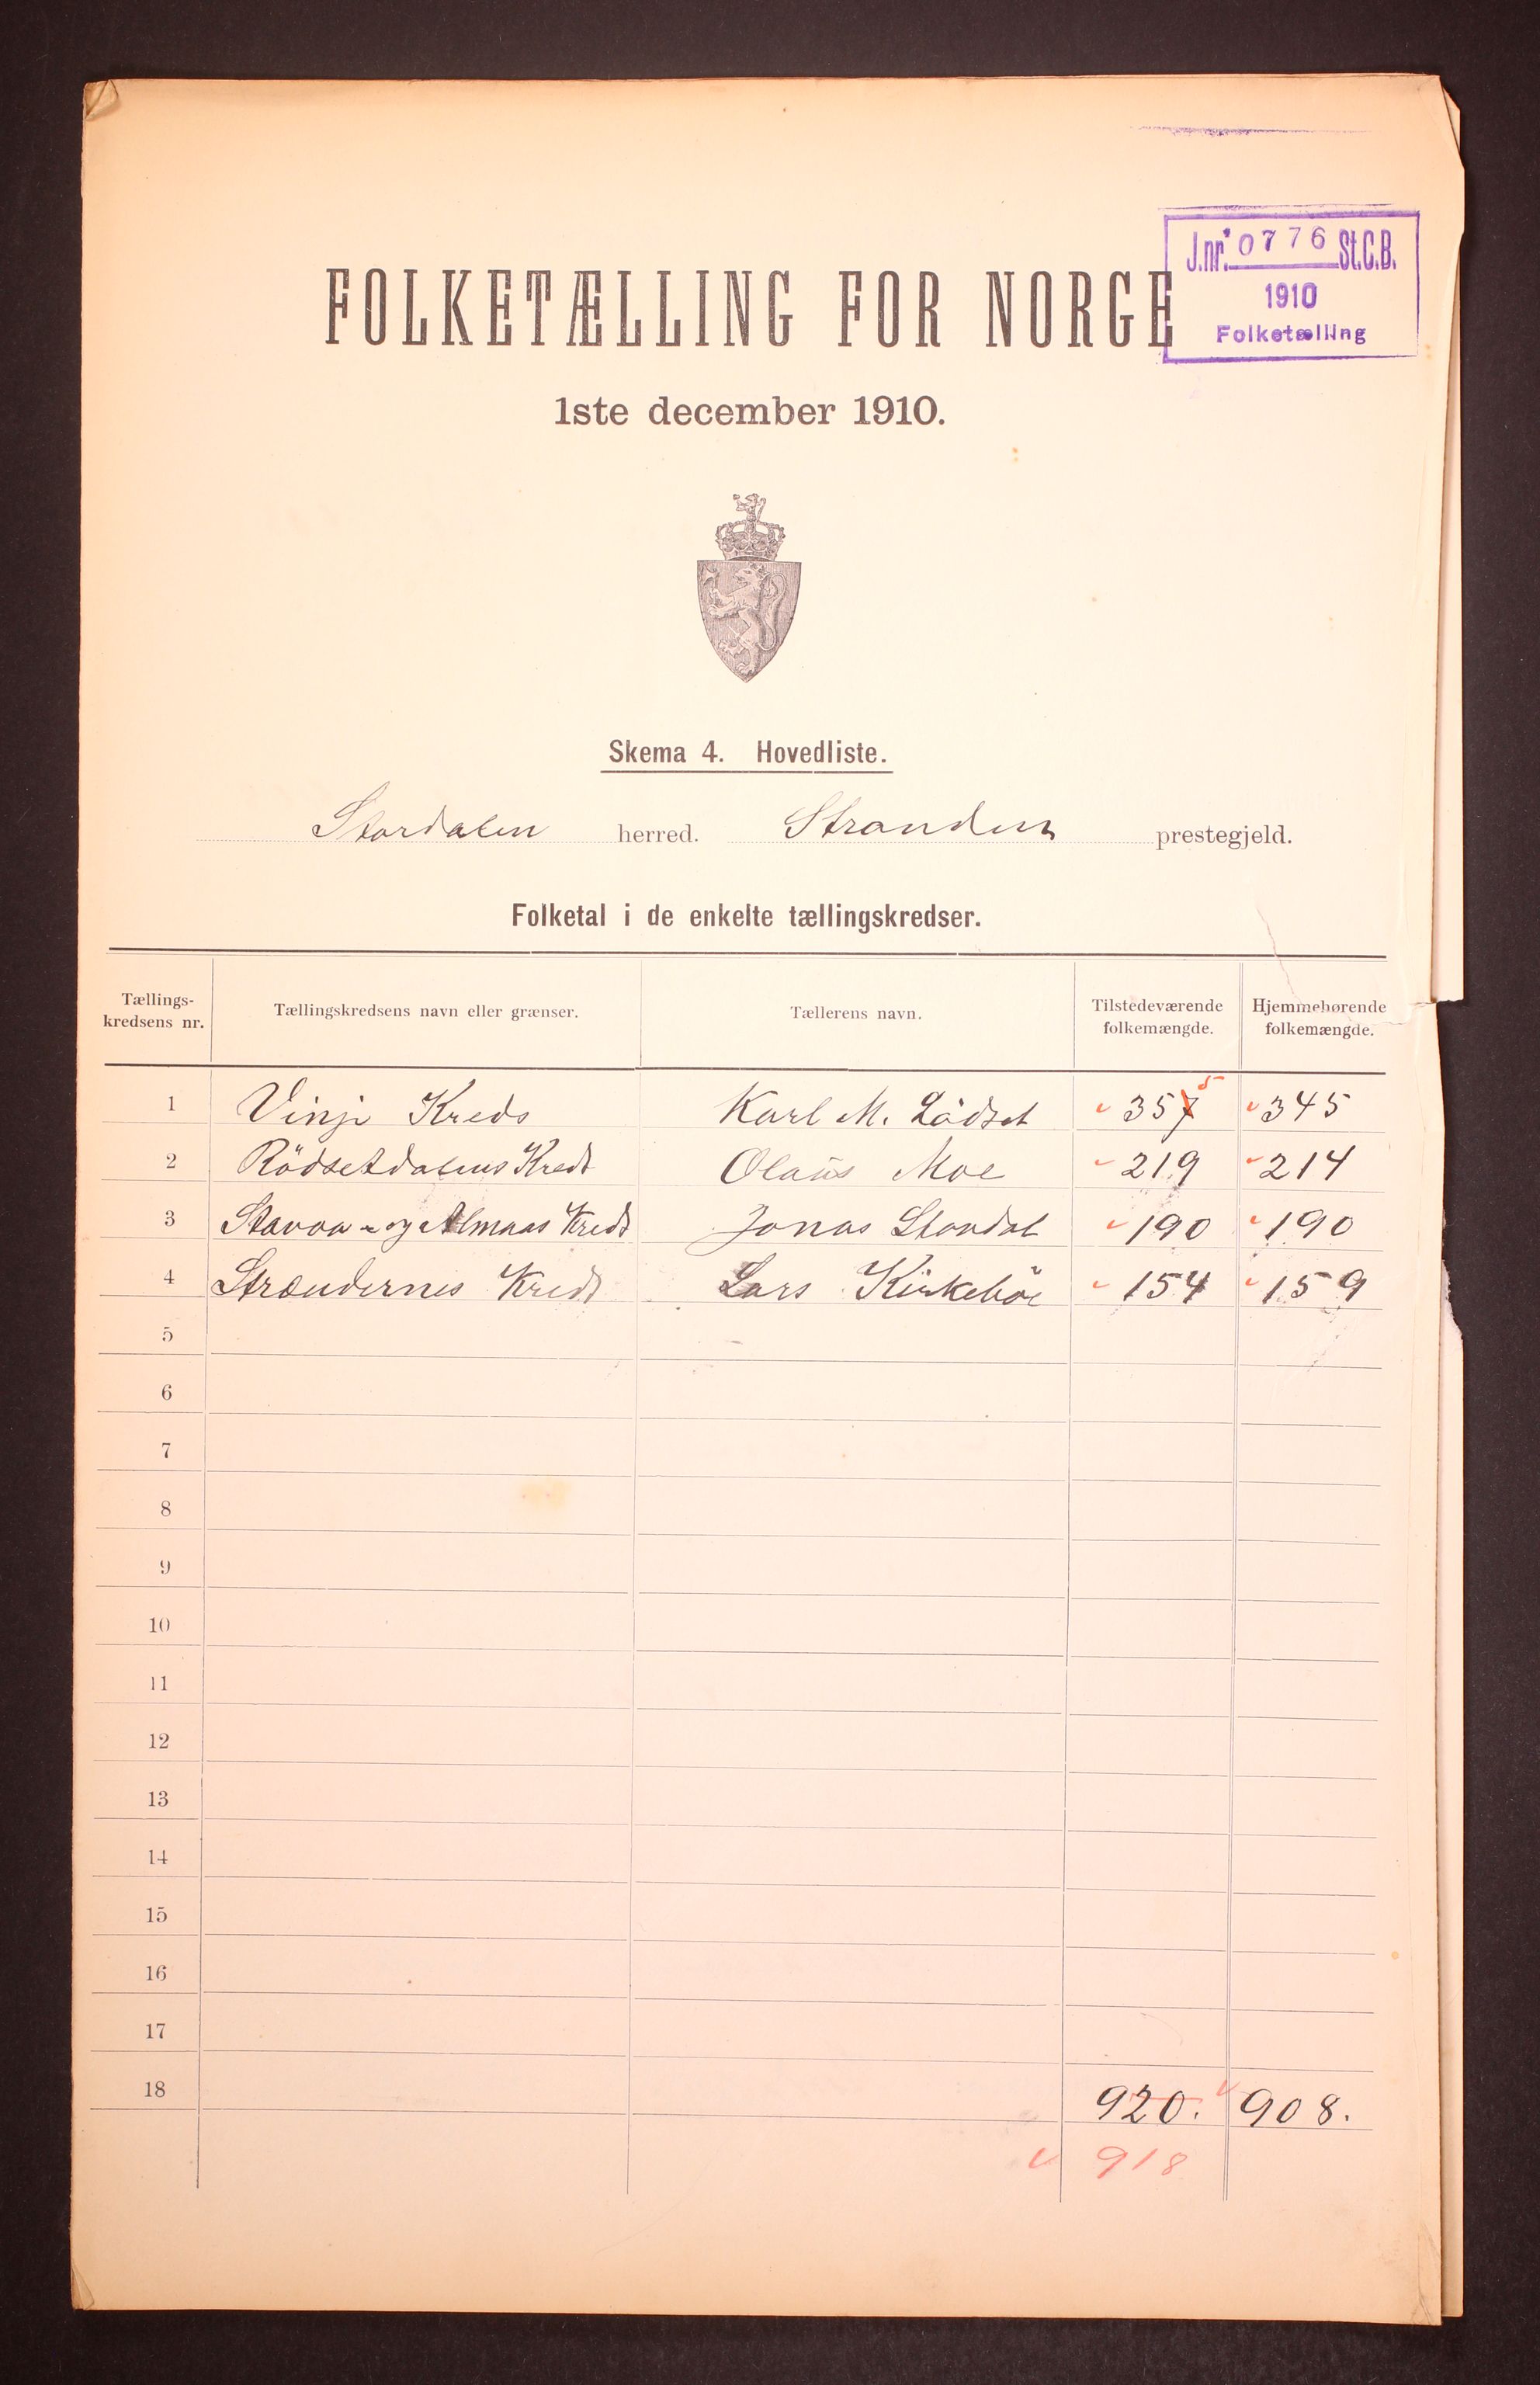 J.nr. 0776 St.C.B.
1910
Folketælling
FOLKETÆLLING FOR NORGE
1ste december 1910.
Skema 4. Hovedliste.
Stordalen herred. Stranden prestegjeld.
Folketal i de enkelte tællingskredser.
Tællings-
kredsens nr.
Tællingskredsens navn eller grænser.
Tællerens navn.
Tilstedeværende
folkemængde.
Hjemmehørende
folkemængde.
5
1 Vinje Kreds Karl M. Lödset 357 345
2 Rödsetdalens Kreds Olaus Moe 219 214
3 Stavoa- og Almaas Kreds Jonas Stordal 190 190
4 Strændernes Kreds Lars Kirkeböe 154 159
5
6
7
8
9
10
11
12
13
14
15
16
17
18 920. 908.
918